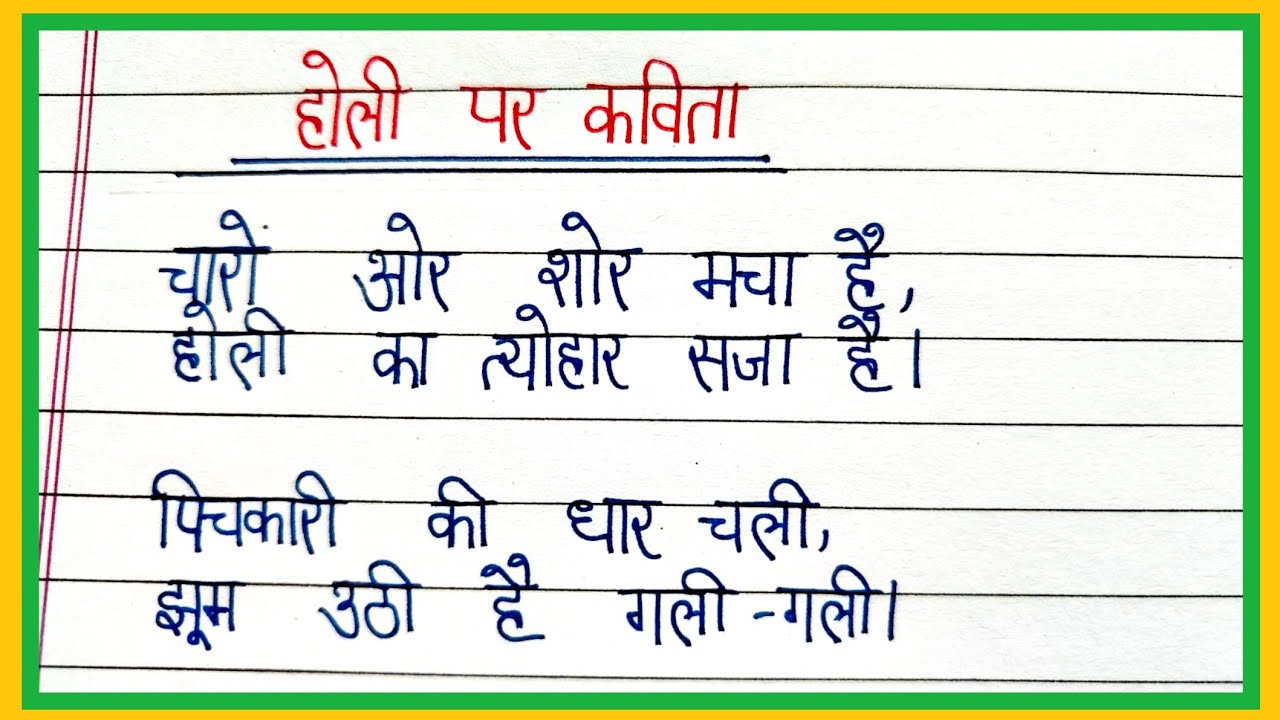 होली पर कविता
चारों ओर शोर मचा है,
होली का त्योहार सजा है।
पिचकारी की धार चली,
झूम उठी है गली-गली।